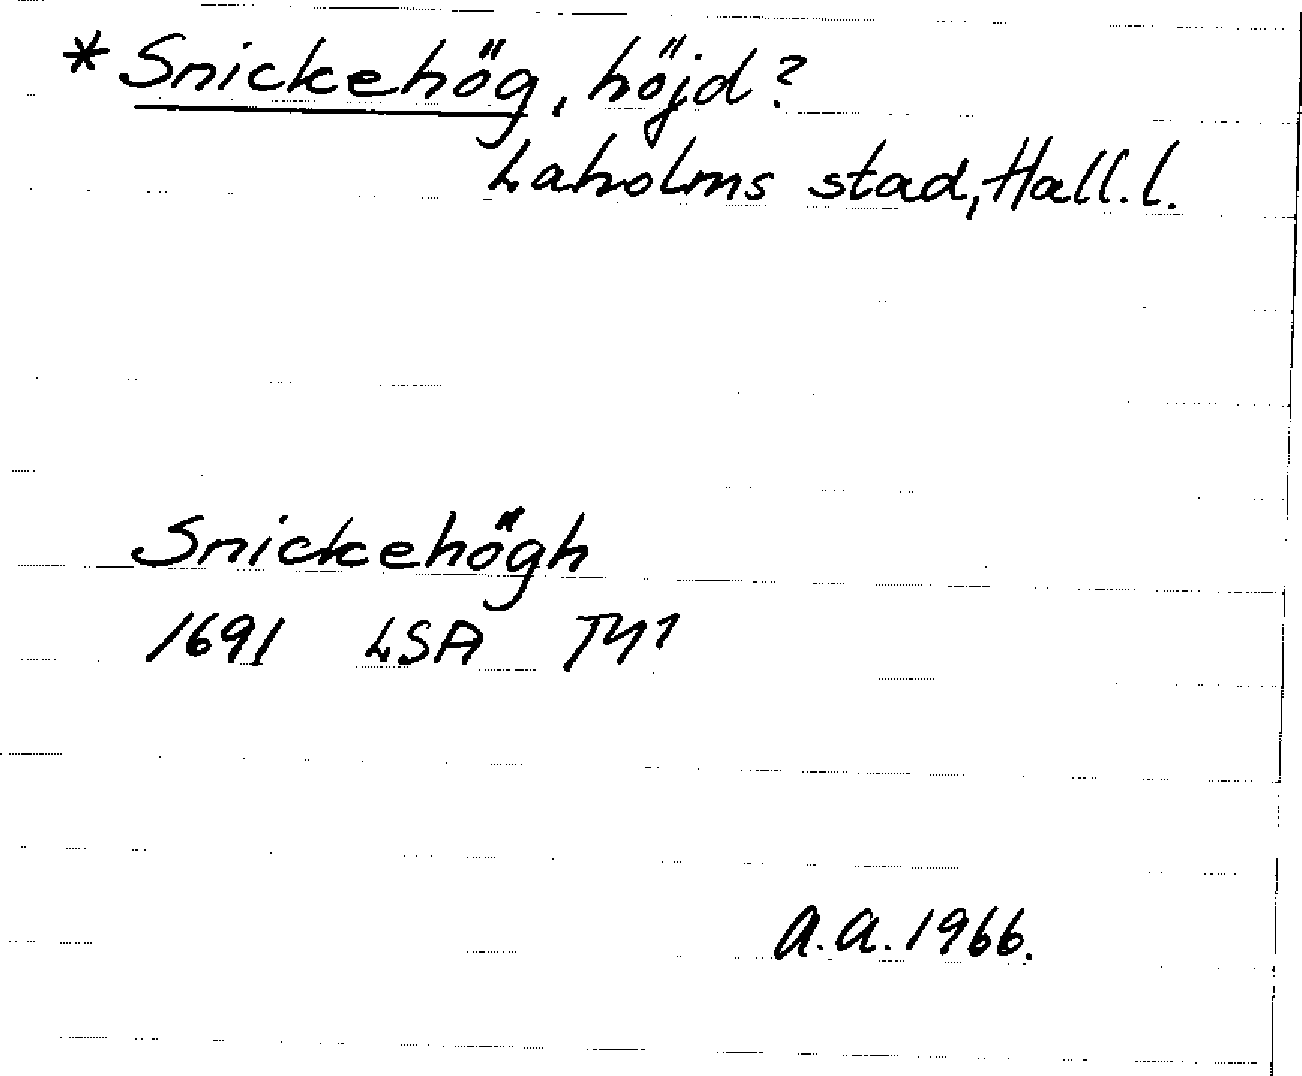 *Snickehög, höjd?
Laholms stad, Hall. l.
Snickehögh
1691 LSA T41
A.A. 1966.